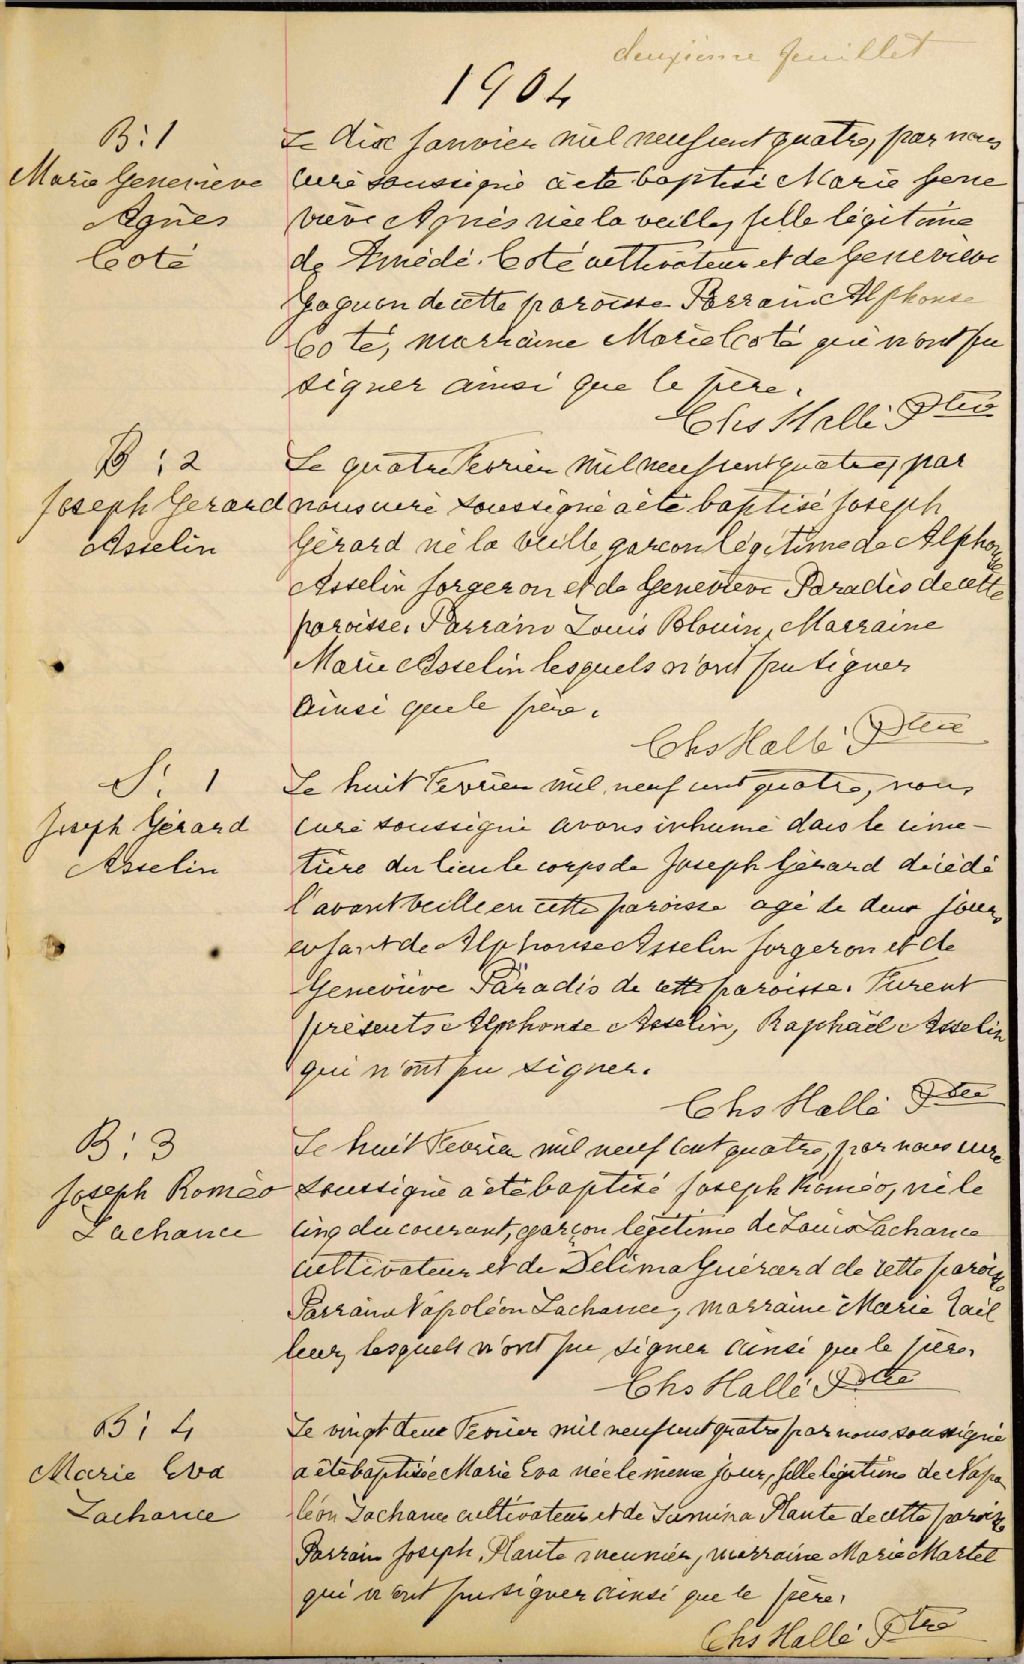 deuxième feuillet
1904
B: 1
Marie Geneviève
Agnès
Coté
Le dix Janvier mil neuf cent quatre, par nous
curé soussigné a été baptisé Marie Gene
viève Agnès née la veille, fille légitime
de Amédé Coté cultivateur et de Geneviève
Gagnon de cette paroisse Parrain Alphonse
Coté, marraine Marie Coté qui n'ont pu
signer ainsi que le père.
Chs Hallé Ptre
B: 2
Joseph Gerard
Asselin
Le quatre Fevrier mil neuf cent quatre, par
nous curé soussigné a été baptisé Joseph
Gérard né la veille, garcon légitime de Alphonse
Asselin forgeron et de Geneviève Paradis de cette
paroisse. Parrain Louis Blouin, Marraine
Marie Asselin lesquels n'ont pu signer
ainsi que le père.
Chs Hallé Ptre
S: 1
Joseph Gérard
Asselin
Le huit Fevrier mil neuf cent quatre, nous
curé soussigné avons inhumé dans le cime-
tière du lieu le corps de Joseph Gérard décédé
l'avant veille en cette paroisse agé de deux jours,
enfant de Alphonse Asselin forgeron et de
Geneviève Paradis de cette paroisse. Furent
présents Alphonse Asselin, Raphaël Asselin
qui n'ont pu signer.
Chs Hallé Ptre
B: 3
Joseph Roméo
Lachance
Le huit Fevrier mil neuf cent quatre, par nous curé
soussigné a été baptisé Joseph Roméo, né le
cinq du courant, garçon légitime de Louis Lachance
cultivateur et de Délima Guérard de cette paroisse
Parrain Napoléon Lachance, marraine Marie Tail
leur, lesquels n'ont pu signer ainsi que le père.
Chs Hallé Ptre
B: 4
Marie Eva
Lachance
Le vingt deux Fevrier mil neuf cent quatre par nous soussigné
a été baptisée Marie Eva née le même jour, fille légitime de Napo
léon Lachance cultivateur et de Lumina Plante de cette paroisse
Parrain Joseph Plante meunier, marraine Marie Martel
qui n'ont pu signer ainsi que le père.
Chs Hallé Ptre